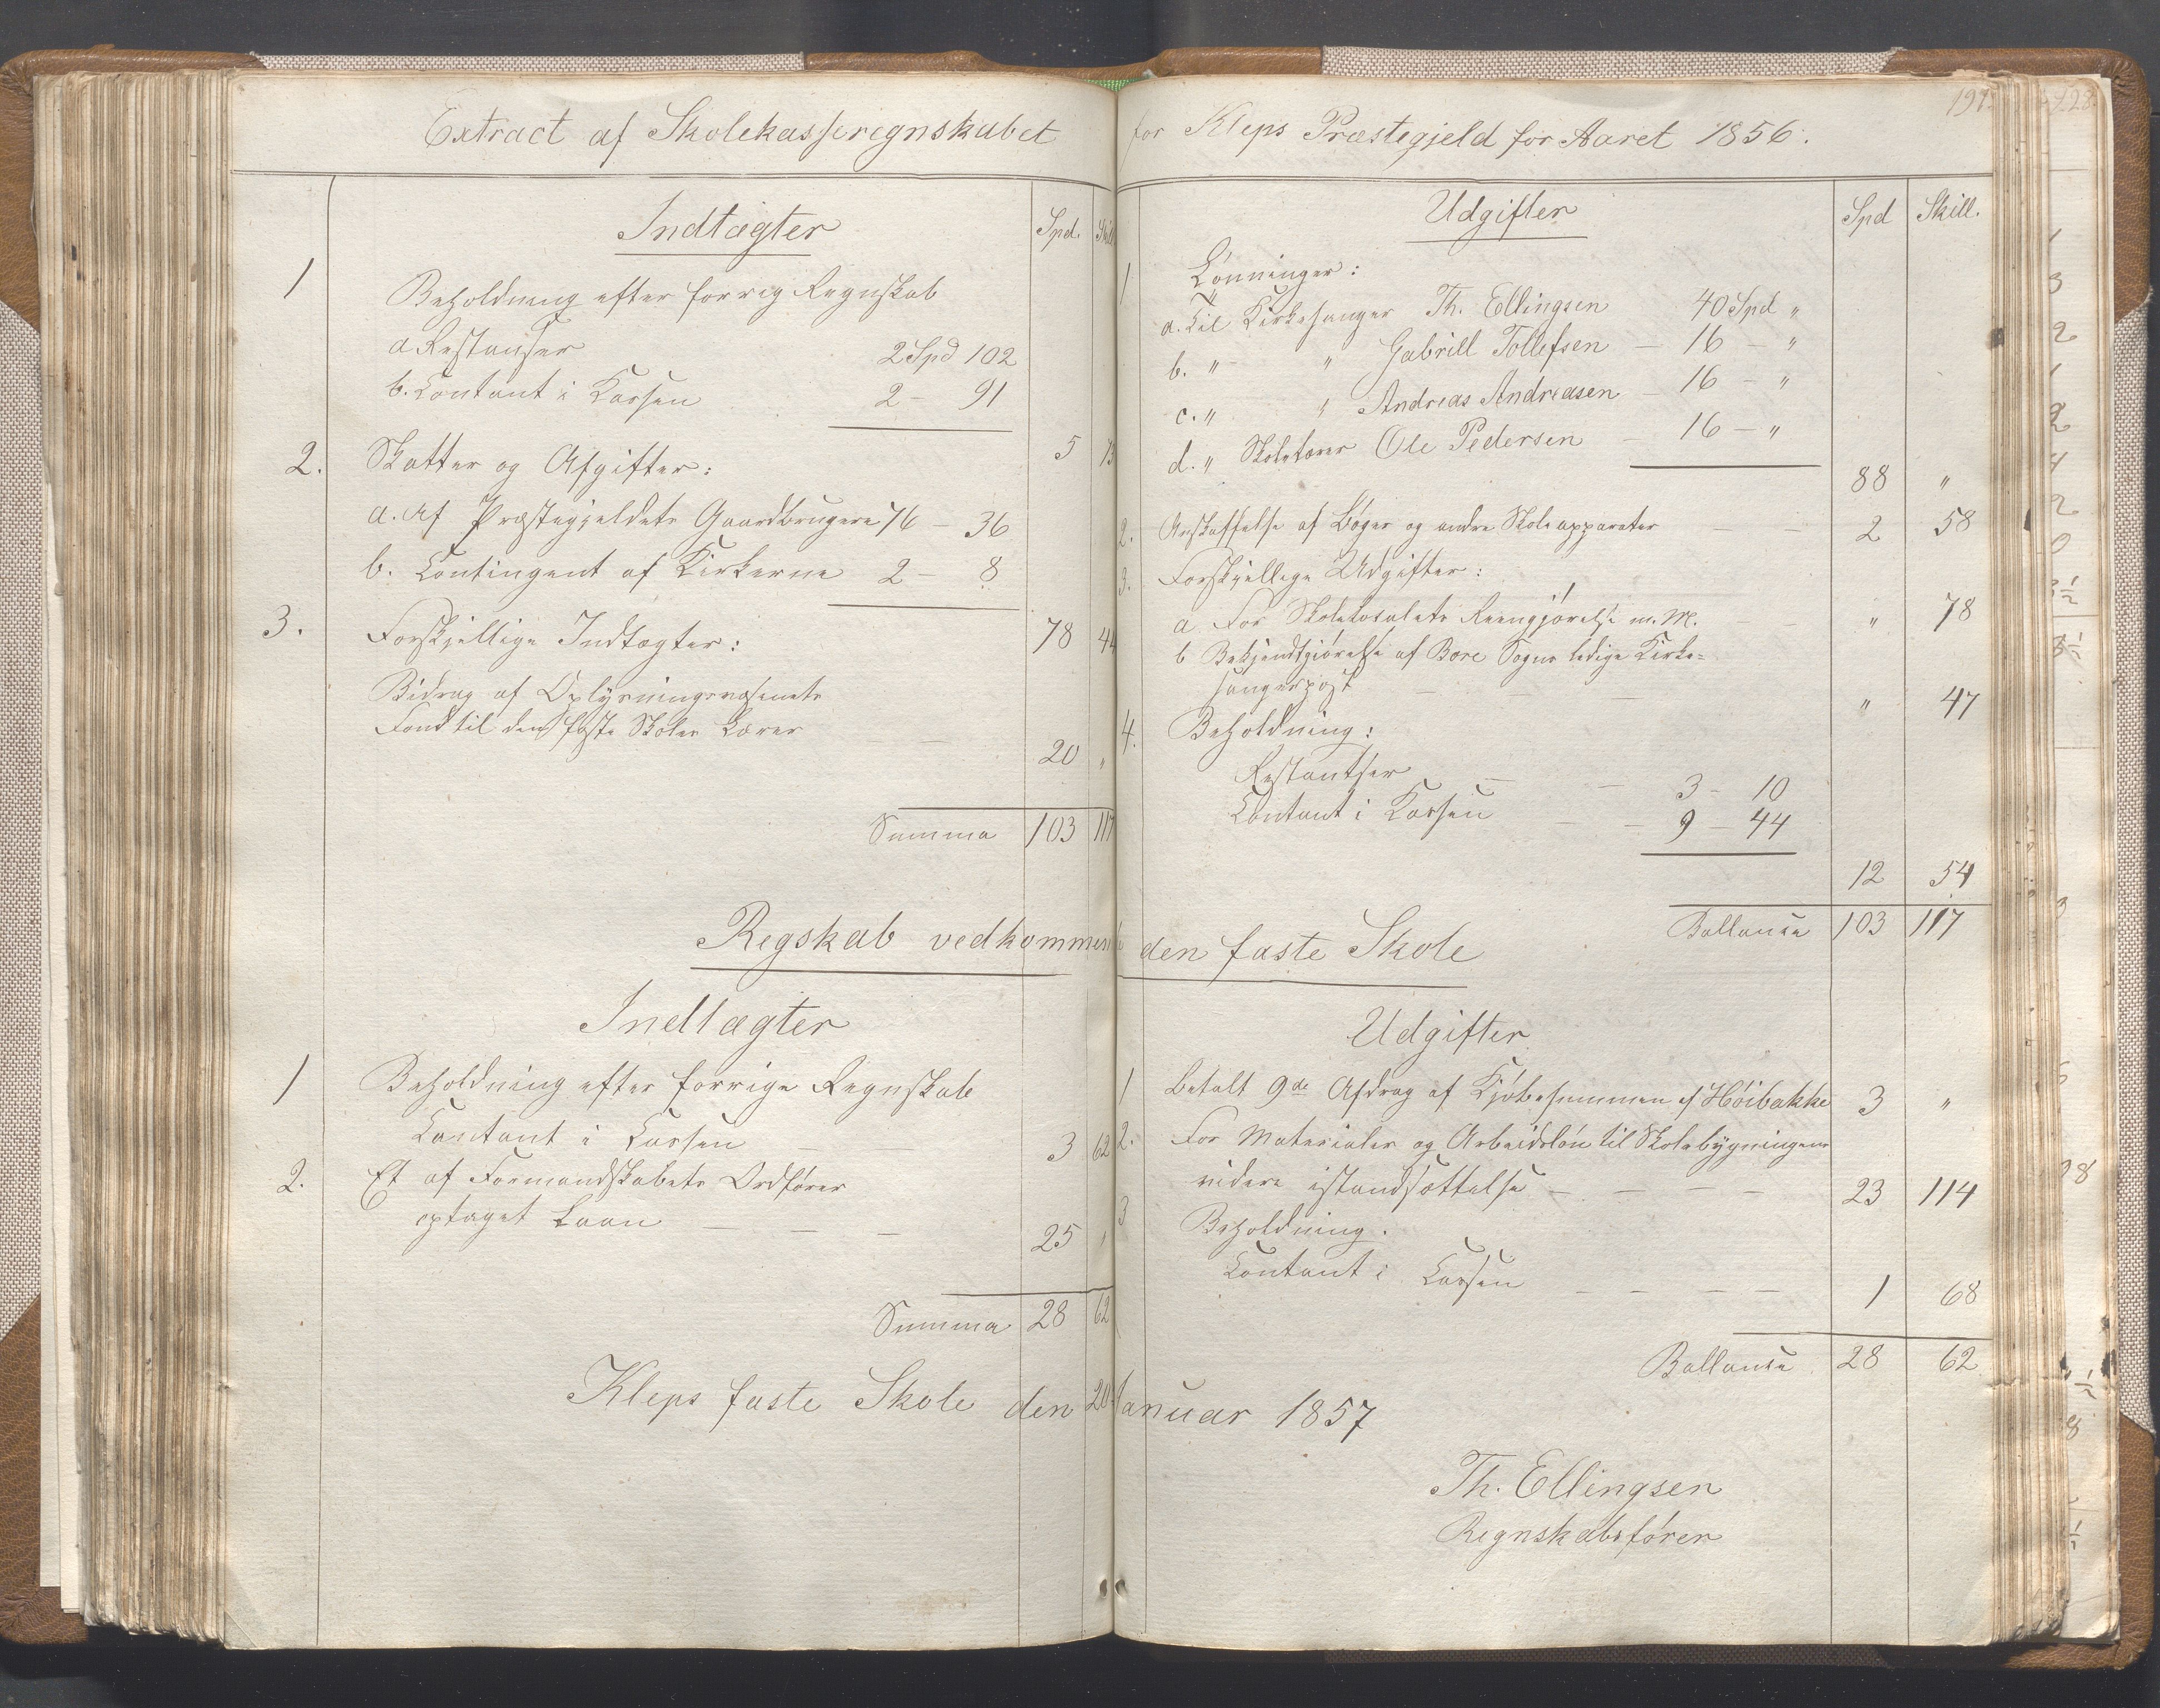 Extract af Skolekasseregnskabet for Kleps Præstegjeld for Aaret 1856.
197
Indtægter
Spd. Skill
1 Beholdning efter forrig Regnskab
a Restanser 2 Spd 102
b. Contant i Kassen 2 - 91
5 73
2. Skatter og Afgifter:
a. Af Præstegjeldets Gaardbrugere 76 - 36
b. Contingent af Kirkerne 2 - 8
78 44
3. Forskjellige Indtægter:
Bidrag af Oplysningsvæsenets
Fond til den faste Skoles Lærer — — 20 "
Summa 103 117
Udgifter
Spd Skill.
1 Lønninger:
a. Til Kirkesanger Th. Ellingsen 40 Spd "
b. " " Gabriel Tollefsen — 16 - "
c. " " Andreas Andreasen — 16 - "
d. " Skolelærer Ole Pedersen — 16 - "
88 "
2. Anskaffelse af Bøger og andre Skoleapparater — — 2 58
3. Forskjellige Udgifter:
a For Skolelocalets Reengjørelse m. M. — — " 78
b Bekjendtgjørelse af Bore Sogns ledige Kirke=
sangerpost — — — " 47
4. Beholdning:
Restantser — — 3 - 10
Contant i Kassen — — 9 - 44
12 54
Ballance 103 117
Regskab vedkommende den faste Skole
Indtægter
1 Beholdning efter forrige Regnskab
Contant i Cassen — — 3 62
2. Et af Formandskabets Ordfører
optaget Laan — — — 25 "
Summa 28 62
Udgifter
1 Betalt 9de Afdrag af Kjøbesummen af Høibakke 3 "
2. For Materialer og Arbeidsløn til Skolebygningens
videre istandsættelse — — — — 23 114
3 Beholdning.
Contant i Cassen — — — — 1 68
Ballance 28 62
Kleps faste Skole den 20 Januar 1857
Th. Ellingsen
Regnskabsfører